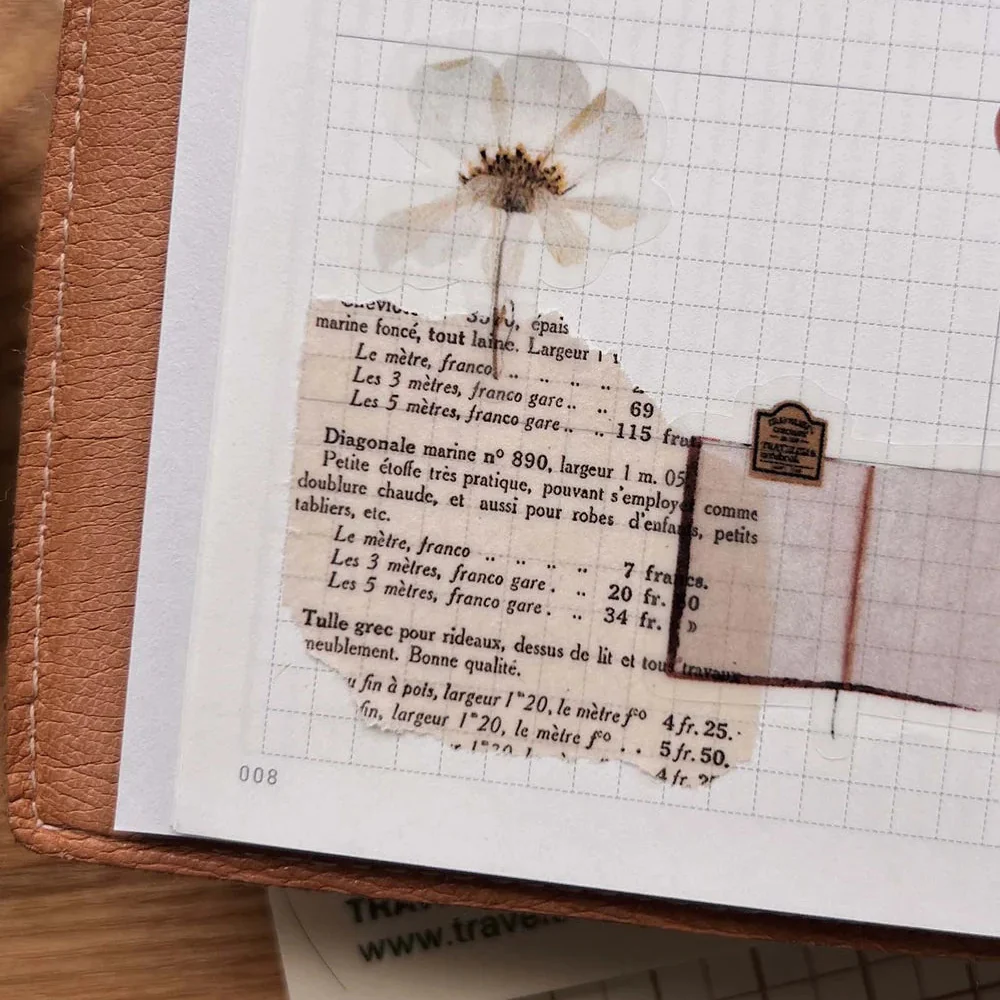 épais
marine foncé, tout laine. Largeur 1
Le mètre, franco .. .. .. ..
Les 3 mètres, franco gare .. .. 69
Les 5 mètres, franco gare .. .. 115
Diagonale marine nº 890, largeur 1 m. 05
Petite étoffe très pratique, pouvant s'employer comme
doublure chaude, et aussi pour robes d'enfants, petits
tabliers, etc.
Le mètre, franco .. .. .. .. 7 francs.
Les 3 mètres, franco gare . .. 20 fr. 50
Les 5 mètres, franco gare . .. 34 fr. »
Tulle grec pour rideaux, dessus de lit et tous travaux
meublement. Bonne qualité.
fin à pois, largeur 1m20, le mètre fco 4 fr. 25.
fin, largeur 1m20, le mètre fco .. 5 fr. 50.
1m20, 4 fr.
TRAVELER'S
008
www.trave